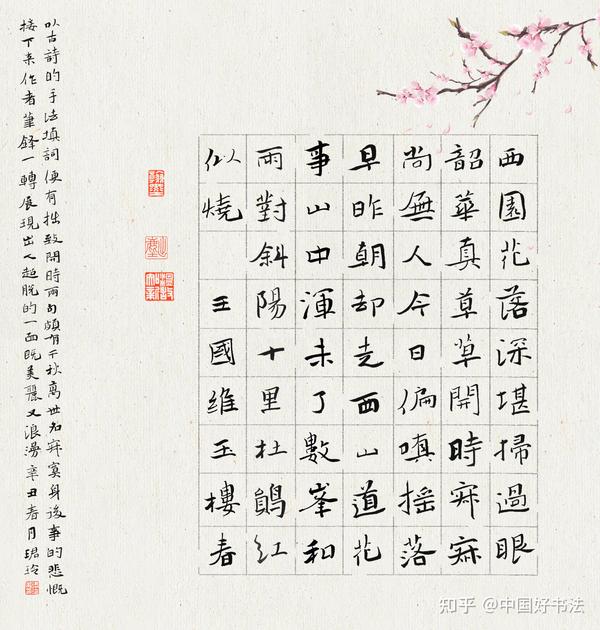 西園花落深堪掃過眼
韶華真草草開時寂寂
尚無人今日偏嗔搖落
早昨朝却走西山道花
事山中渾未了數峯和
雨對斜陽十里杜鵑紅
似燒 王國維玉樓春
以古詩的手法填詞便有拙致開時兩句頗有千秋萬世名寂寞身後事的悲慨
接下来作者筆鋒一轉展現出人超脫的一面既美麗又浪漫辛丑春月珺玲
知乎 @中国好书法